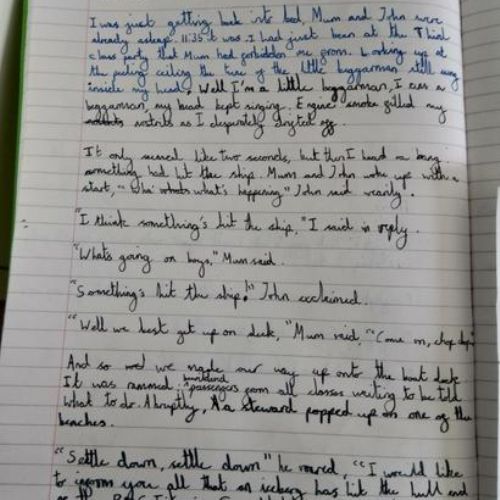 I was just getting back into bed, Mum and John were
already asleep. 11:35 it was. I had just been at the Third
class party that Mum had forbidden me from. Looking up at
the peeling ceiling the tune of the little beggarman still rang
inside my head. Well I'm a little beggarman, I am a
beggarman, my head kept singing. Engine smoke filled my
nostrils as I desperately drifted off.
It only seemed like two seconds, but then I heard a bang
something had hit the ship. Mum and John woke up with a
start, "Wha' what's happening" John said wearily.
"I think something's hit the ship," I said in reply.
"What's going on boys," Mum said.
"Something's hit the ship!" John exclaimed.
"Well we best get up on deck," Mum said, "Come on, chop chop
And so we made our way up onto the boat deck
It was rammed passengers from all classes waiting to be told
what to do. Abruptly, a steward popped up on one of the
beaches.
"Settle down, settle down" he roared, "I would like
to inform you all that an iceberg has hit the hull end
of the